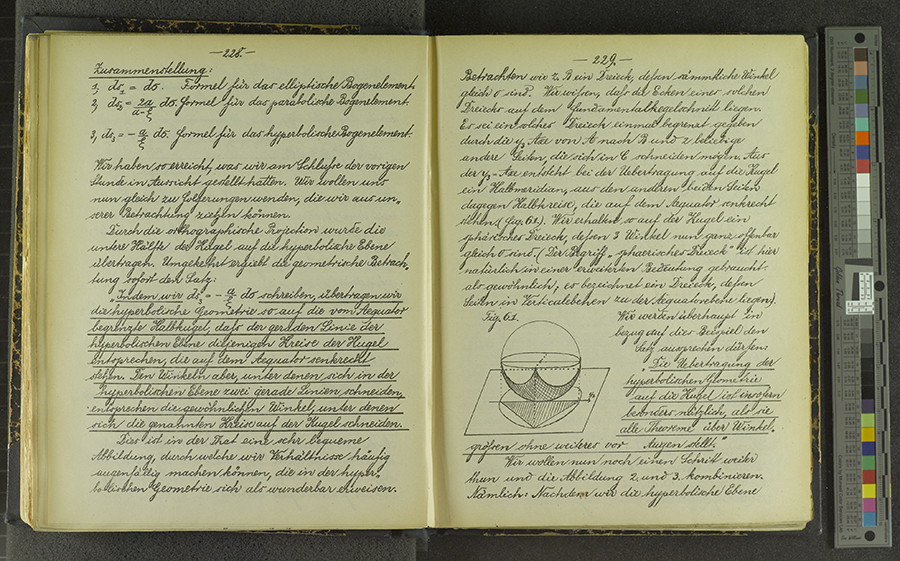 — 228. —
Zusammenstellung:
1, ds₁ = dσ. Formel für das elliptische Bogenelement.
2, ds₂ = 2a/(a-ξ) dσ. Formel für das parabolische Bogenelement.
3, ds₃ = - a/ξ dσ. Formel für das hyperbolische Bogenelement.
Wir haben so erreicht, was wir am Schlusse der vorigen
Stunde in Aussicht gestellt hatten. Wir wollen uns
nun gleich zu Folgerungen wenden, die wir aus un-
serer Betrachtung ziehen können.
Durch die orthographische Projection wurde die
untere Hälfte der Kugel auf die hyperbolische Ebene
übertragen. Umgekehrt ergiebt die geometrische Betrach-
tung sofort den Satz:
„Indem wir ds₃ = - a/ξ dσ schreiben, übertragen wir
die hyperbolische Geometrie so auf die vom Aequator
begrenzte Halbkugel, daß der geraden Linie der
hyperbolischen Ebene diejenigen Kreise der Kugel
entsprechen, die auf dem Aequator senkrecht
stehen. Den Winkeln aber, unter denen sich in der
hyperbolischen Ebene zwei gerade Linien schneiden,
entsprechen die gewöhnlichen Winkel, unter denen
sich die genannten Kreise auf der Kugel schneiden.
Dies ist in der That eine sehr bequeme
Abbildung, durch welche wir Verhältnisse häufig
augenfällig machen können, die in der hyper-
bolischen Geometrie sich als wunderbar erweisen.
— 229. —
Betrachten wir z. B. ein Dreieck, dessen sämmtliche Winkel
gleich 0 sind. Wir wissen, daß die Ecken eines solchen
Dreiecks auf dem Fundamentalkegelschnitt liegen.
Es sei ein solches Dreieck einmal begrenzt gegeben
durch die y₂ Axe von A nach B und 2 beliebige
andere Seiten, die sich in C schneiden mögen. Aus
der y₂-Axe entsteht bei der Uebertragung auf die Kugel
ein Halbmeridian, aus den anderen beiden Seiten
dagegen Halbkreise, die auf dem Aequator senkrecht
stehen. (Fig. 61.) Wir erhalten so auf der Kugel ein
sphärisches Dreieck, dessen 3 Winkel nun ganz offenbar
gleich 0 sind. (Der Begriff „sphaerisches Dreieck" ist hier
natürlich in einer erweiterten Bedeutung gebraucht
als gewöhnlich, es bezeichnet ein Dreieck, dessen
Seiten in Verticalebenen zu der Aequatorebene liegen).
Fig. 61.
Wir werden überhaupt in
bezug auf dies Beispiel den
Satz aussprechen dürfen:
„Die Uebertragung der
hyperbolischen Geometrie
auf die Kugel ist insofern
besonders nützlich, als sie
alle Theoreme über Winkel-
größen ohne weiteres vor Augen stellt."
Wir wollen nun noch einen Schritt weiter
thun und die Abbildung 2 und 3 kombinieren.
Nämlich: Nachdem wir die hyperbolische Ebene